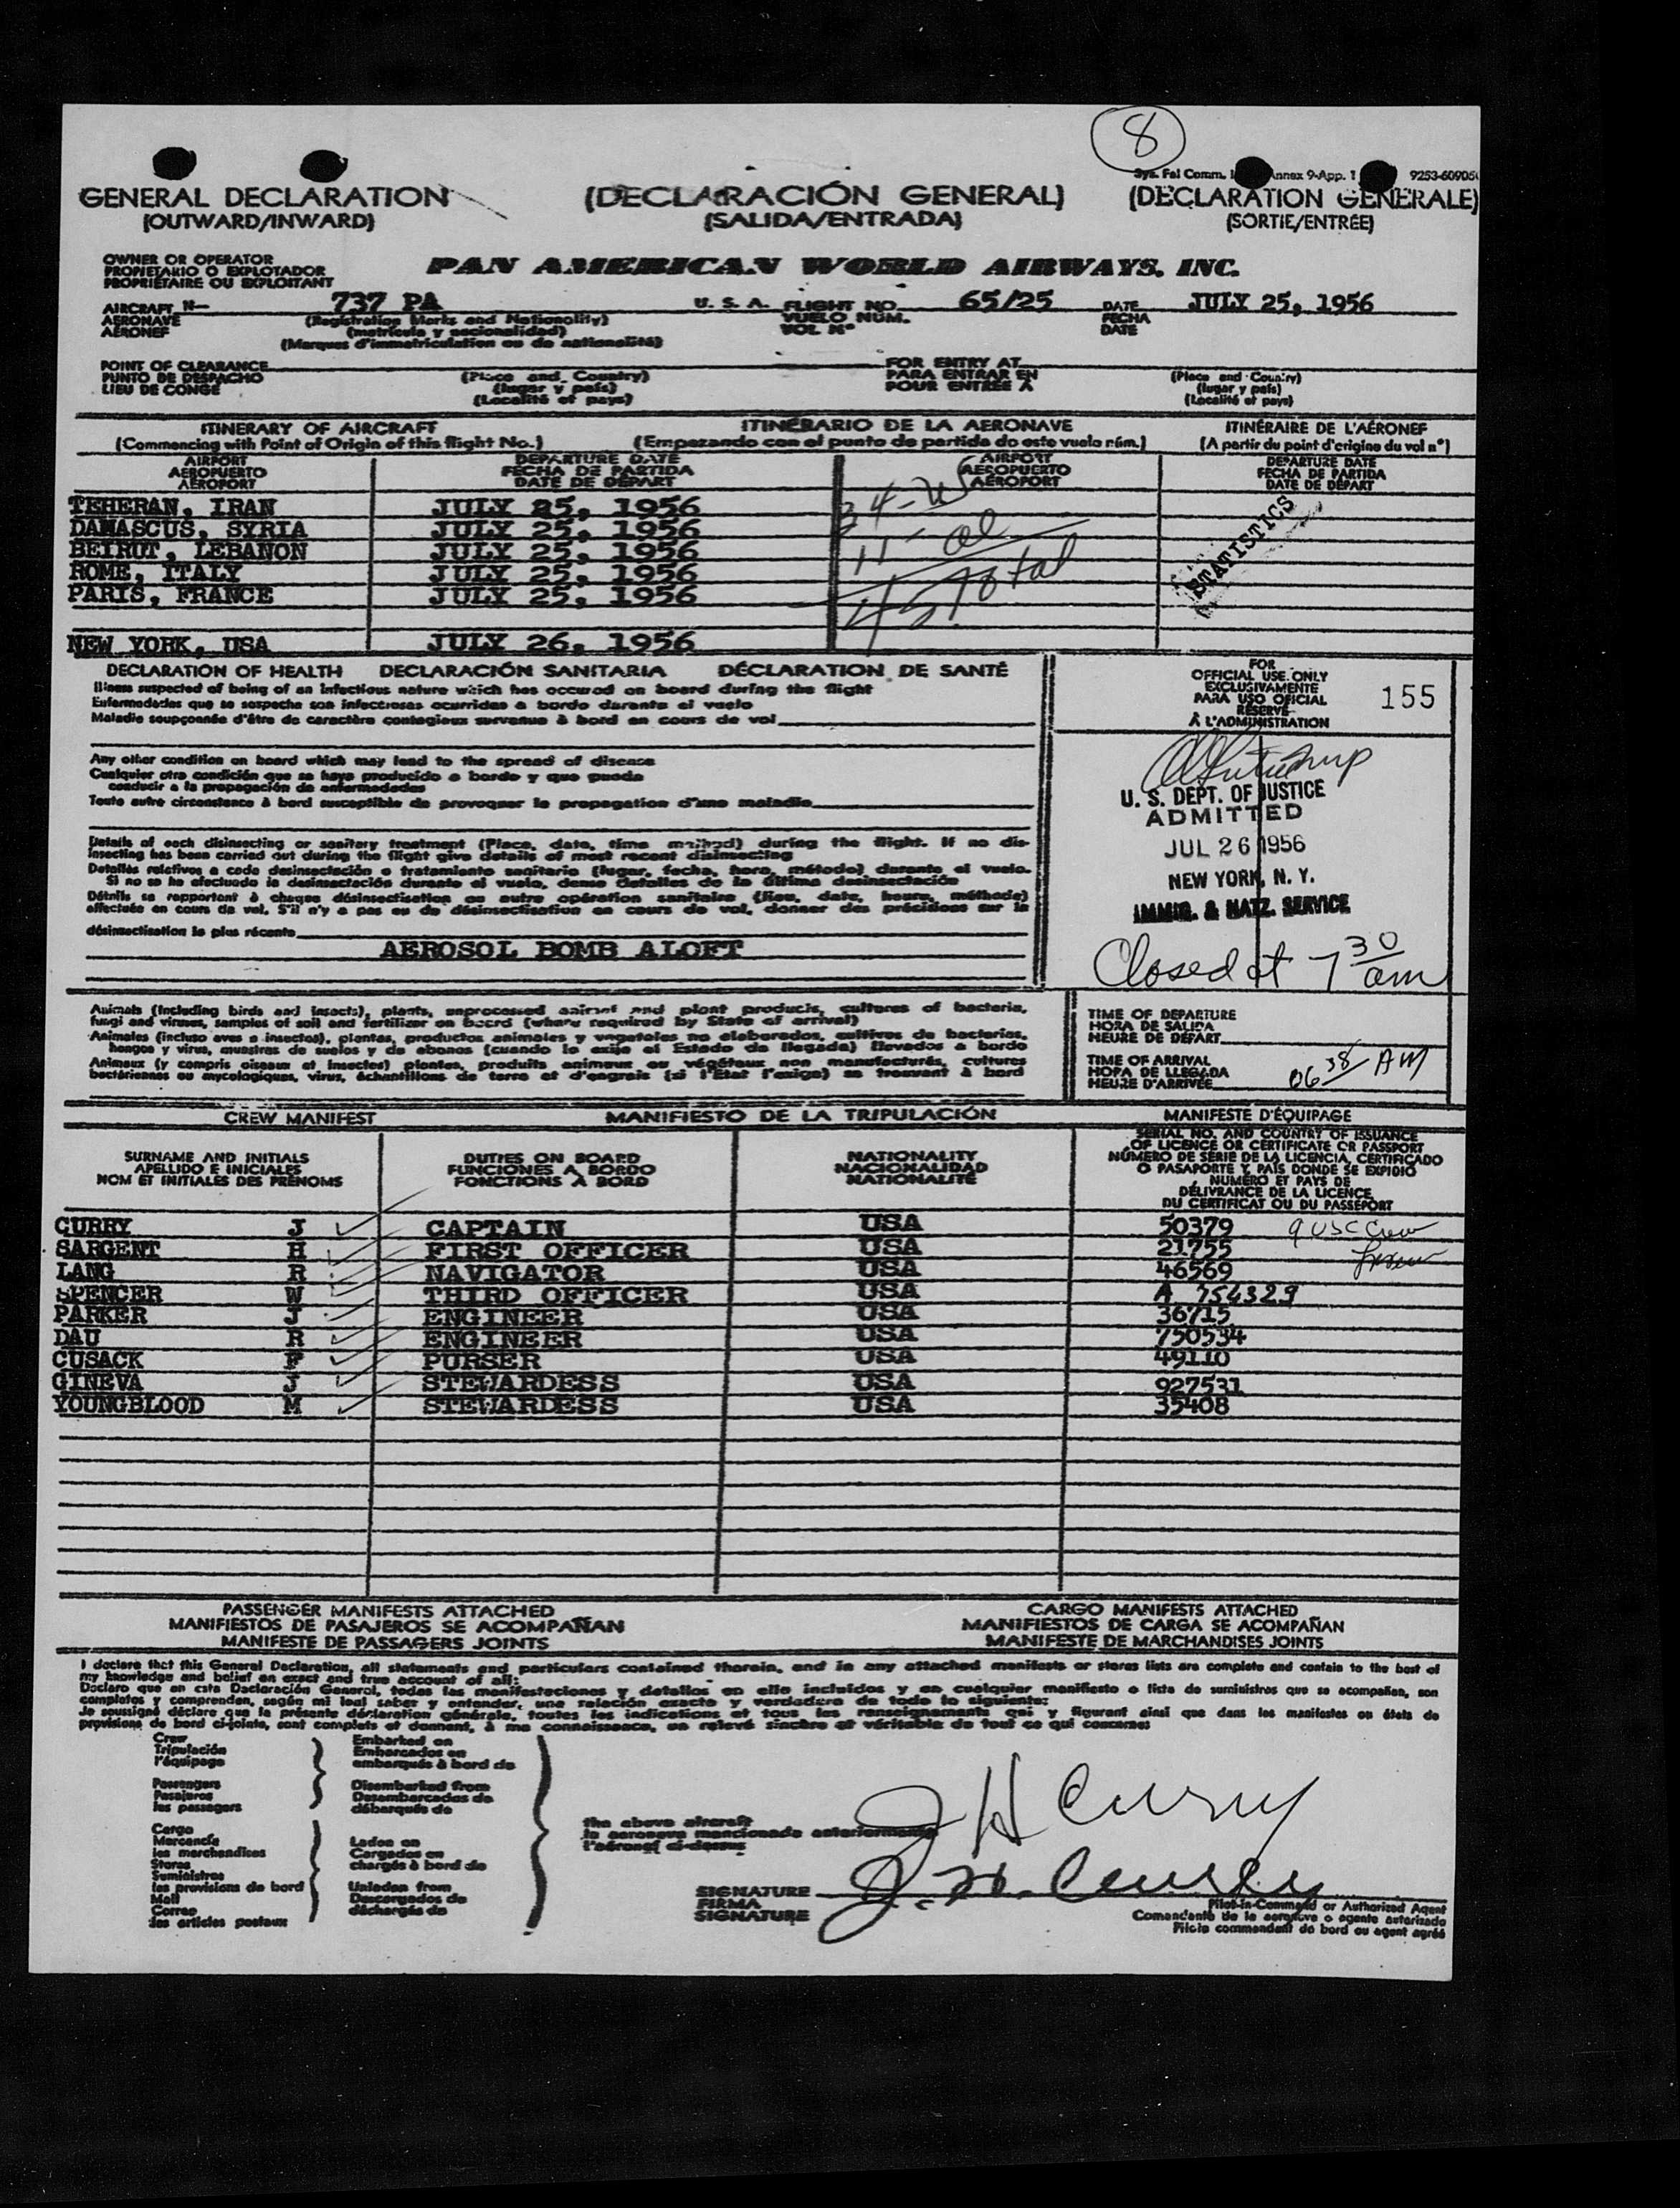 8
Annex 9-App. 1 9253-60905
GENERAL DECLARATION (DECLARACIÓN GENERAL) (DECLARATION GENERALE)
(OUTWARD/INWARD) (SALIDA/ENTRADA) (SORTIE/ENTRÉE)
OWNER OR OPERATOR
PROPIETARIO O EXPLOTADOR
PROPRIÉTAIRE OU EXPLOITANT
PAN AMERICAN WORLD AIRWAYS, INC.
AIRCRAFT N— 737 PA U. S. A. FLIGHT NO. 65/25 DATE JULY 25, 1956
AERONAVE (Registration Marks and Nationality) VUELO NÚM. FECHA
AÉRONEF (matrícula y nacionalidad) VOL Nº DATE
(Marques d'immatriculation ou de nationalité)
POINT OF CLEARANCE FOR ENTRY AT
PUNTO DE DESPACHO (Place and Country) PARA ENTRAR EN (Place and Country)
LIEU DE CONGÉ (lugar y país) POUR ENTRÉE À (lugar y país)
(Localité et pays) (Localité et pays)
ITINERARY OF AIRCRAFT ITINERARIO DE LA AERONAVE ITINÉRAIRE DE L'AÉRONEF
(Commencing with Point of Origin of this flight No.) (Empezando con el punto de partida de este vuelo núm.) (A partir du point d'origine du vol nº)
AIRPORT DEPARTURE DATE AIRPORT DEPARTURE DATE
AEROPUERTO FECHA DE PARTIDA AEROPUERTO FECHA DE PARTIDA
AÉROPORT DATE DE DÉPART AÉROPORT DATE DE DÉPART
TEHERAN, IRAN JULY 25, 1956 34-
DAMASCUS, SYRIA JULY 25, 1956
BEIRUT, LEBANON JULY 25, 1956 11-
ROME, ITALY JULY 25, 1956 STATISTICS
PARIS, FRANCE JULY 25, 1956 45 Total
NEW YORK, USA JULY 26, 1956
DECLARATION OF HEALTH DECLARACIÓN SANITARIA DÉCLARATION DE SANTÉ
Illness suspected of being of an infectious nature which has occured on board during the flight
Enfermedades que se sospecha son infecciosas ocurridas a bordo durante el vuelo
Maladie soupçonnée d'être de caractère contagieux survenue à bord en cours de vol
FOR
OFFICIAL USE ONLY
EXCLUSIVAMENTE
PARA USO OFICIAL
RÉSERVÉ
À L'ADMINISTRATION
155
Any other condition on board which may lead to the spread of disease
Cualquier otra condición que se haya producido a bordo y que pueda
conducir a la propagación de enfermedades
Toute autre circonstance à bord susceptible de provoquer la propagation d'une maladie
U. S. DEPT. OF JUSTICE
ADMITTED
JUL 26 1956
NEW YORK, N. Y.
IMMIG. & NATZ. SERVICE
Closed at 7 30 am
Details of each disinsecting or sanitary treatment (Place, date, time method) during the flight. If no dis-
insecting has been carried out during the flight give details of most recent disinsecting
Detalles relativos a cada desinsectación o tratamiento sanitario (lugar, fecha, hora, método) durante el vuelo.
Si no se ha efectuado la desinsectación durante el vuelo, dense detalles de la última desinsectación
Détails se rapportant à chaque désinsectisation ou autre opération sanitaire (lieu, date, heure, méthode)
effectuée en cours de vol. S'il n'y a pas eu de désinsectisation en cours de vol, donner des précisions sur la
désinsectisation la plus récente
AEROSOL BOMB ALOFT
Animals (including birds and insects), plants, unprocessed animal and plant products, cultures of bacteria,
fungi and viruses, samples of soil and fertilizer on board (where required by State of arrival)
Animales (incluso aves e insectos), plantas, productos animales y vegetales no elaborados, cultivos de bacterias,
hongos y virus, muestras de suelos y de abonos (cuando lo exija el Estado de llegada) llevados a bordo
Animaux (y compris oiseaux et insectes) plantes, produits animaux ou végétaux non manufacturés, cultures
bactériennes ou mycologiques, virus, échantillons de terre et d'engrais (si l'État l'exige) se trouvant à bord
TIME OF DEPARTURE
HORA DE SALIDA
HEURE DE DÉPART
TIME OF ARRIVAL
HORA DE LLEGADA
HEURE D'ARRIVÉE 06 38 AM
CREW MANIFEST MANIFIESTO DE LA TRIPULACIÓN MANIFESTE D'ÉQUIPAGE
SURNAME AND INITIALS
APELLIDO E INICIALES
NOM ET INITIALES DES PRÉNOMS
DUTIES ON BOARD
FUNCIONES A BORDO
FONCTIONS À BORD
NATIONALITY
NACIONALIDAD
NATIONALITÉ
SERIAL NO. AND COUNTRY OF ISSUANCE
OF LICENCE OR CERTIFICATE OR PASSPORT
NÚMERO DE SERIE DE LA LICENCIA, CERTIFICADO
O PASAPORTE Y PAÍS DONDE SE EXPIDIÓ
NUMÉRO ET PAYS DE
DÉLIVRANCE DE LA LICENCE
DU CERTIFICAT OU DU PASSEPORT
CURRY J CAPTAIN USA 50379 9 USC Crew
SARGENT H FIRST OFFICER USA 21755
LANG R NAVIGATOR USA 46569
SPENCER W THIRD OFFICER USA A 754329
PARKER J ENGINEER USA 36715
DAU R ENGINEER USA 750534
CUSACK F PURSER USA 49110
GINEVA J STEWARDESS USA 927531
YOUNGBLOOD M STEWARDESS USA 35408
PASSENGER MANIFESTS ATTACHED CARGO MANIFESTS ATTACHED
MANIFIESTOS DE PASAJEROS SE ACOMPAÑAN MANIFIESTOS DE CARGA SE ACOMPAÑAN
MANIFESTE DE PASSAGERS JOINTS MANIFESTE DE MARCHANDISES JOINTS
I declare that this General Declaration, all statements and particulars contained therein, and in any attached manifests or stores lists are complete and contain to the best of
my knowledge and belief an exact and true account of all:
Declaro que en esta Declaración General, todas las manifestaciones y detalles en ella incluidos y en cualquier manifiesto o lista de suministros que se acompañan, son
completos y comprenden, según mi leal saber y entender, una relación exacta y verdadera de todo lo siguiente:
Je soussigné déclare que la présente déclaration générale, toutes les indications et tous les renseignements qui y figurent ainsi que dans les manifestes ou états de
provisions de bord ci-joints, sont complets et donnent, à ma connaissance, un relevé sincère et véritable de tout ce qui concerne:
Crew
Tripulación
l'équipage
Passengers
Pasajeros
les passagers
Cargo
Mercancía
les marchandises
Stores
Suministros
les provisions de bord
Mail
Correo
les articles postaux
Embarked on
Embarcados en
embarqués à bord de
Disembarked from
Desembarcados de
débarqués de
Laden on
Cargados en
chargés à bord de
Unladen from
Descargados de
déchargés de
the above aircraft
la aeronave mencionada anteriormente
l'aéronef ci-dessus
J H Curry
SIGNATURE J. H. Curry
FIRMA
SIGNATURE
Pilot-in-Command or Authorized Agent
Comandante de la aeronave o agente autorizado
Pilote commandant de bord ou agent agréé